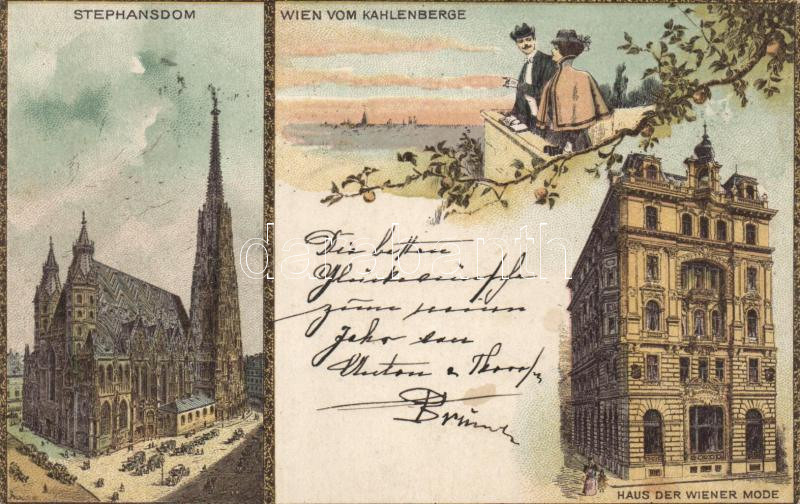 STEPHANSDOM
WIEN VOM KAHLENBERGE
Die besten
Glückwünsche
zum neuen
Jahr von
Anton
HAUS DER WIENER MODE
darabanth